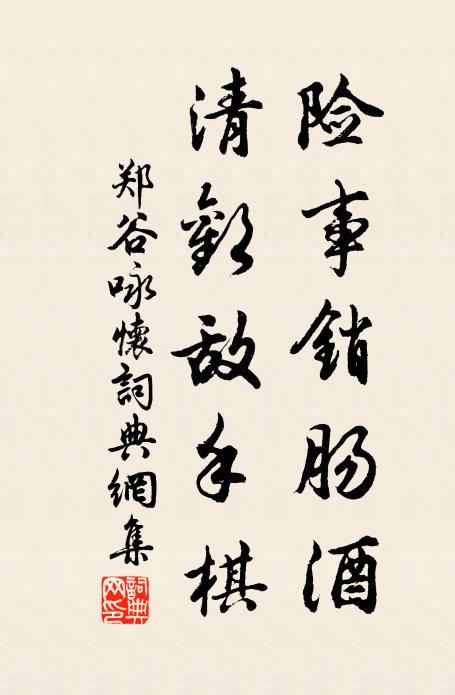 险事銷肠酒
清歡敌手棋
郑谷咏懷詞典網集
詞典
网印